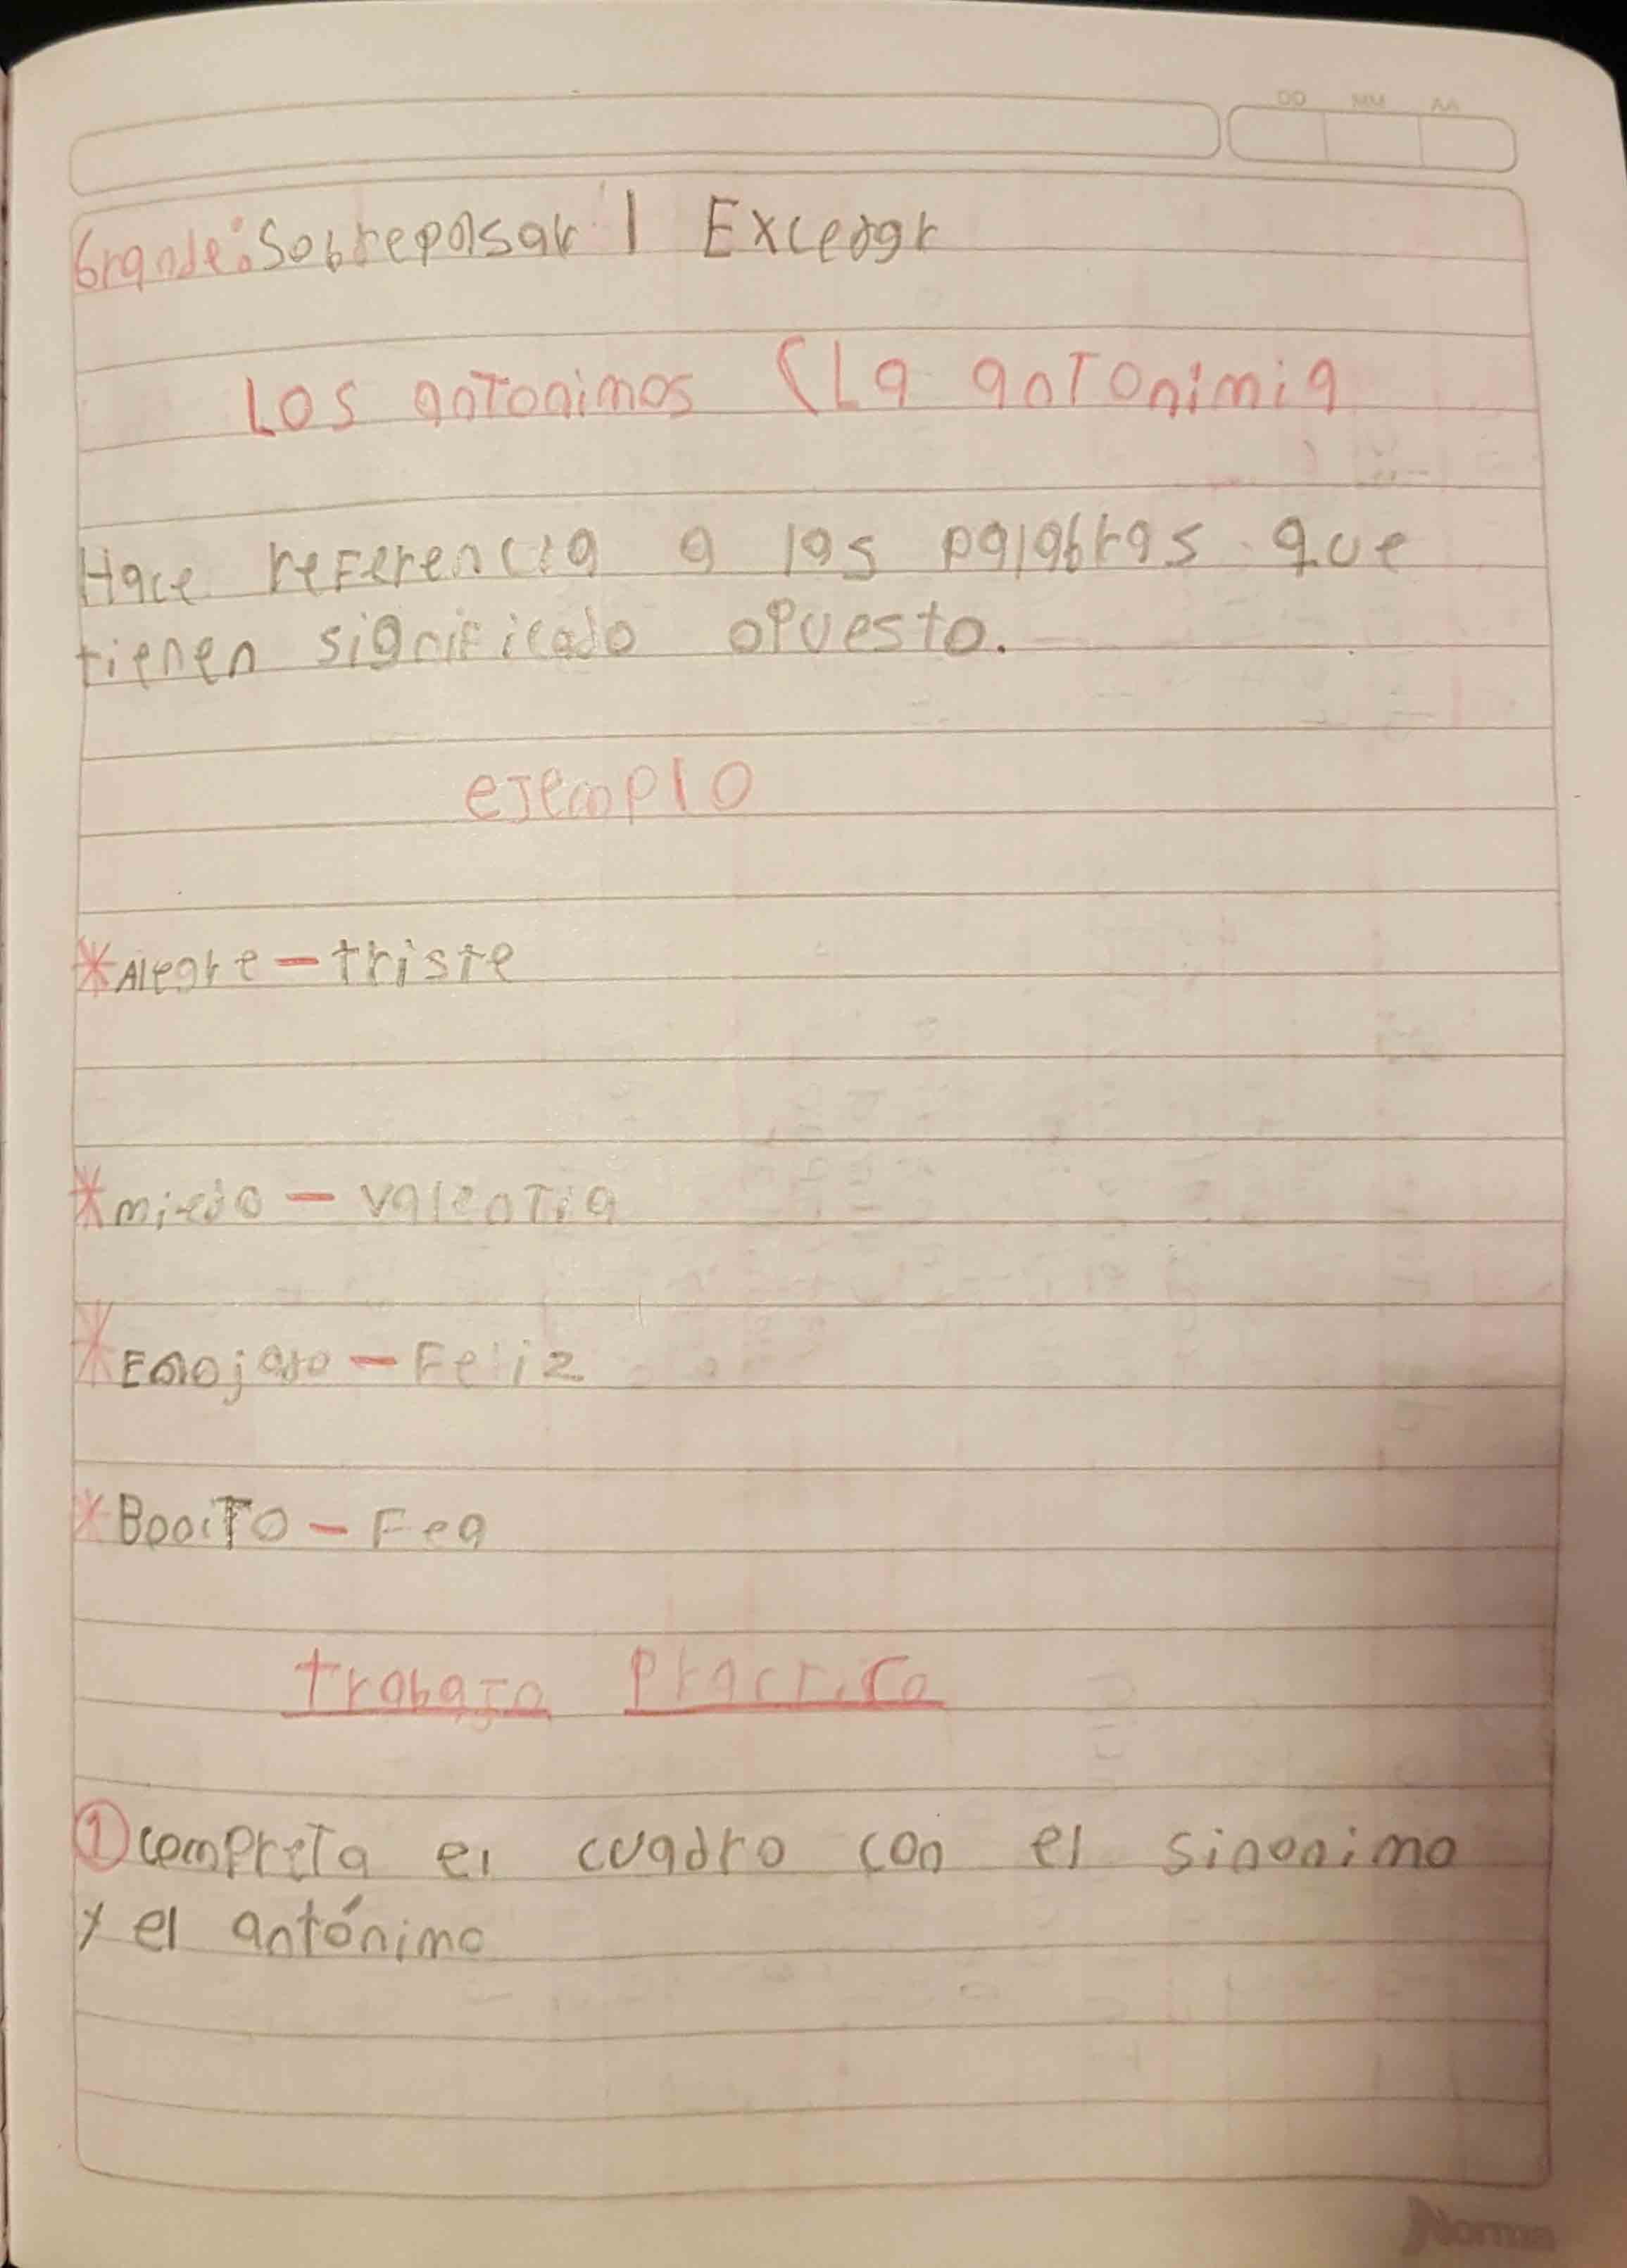 DD MM AA
Grande: Sobrepasar | Excedar
Los antonimos (La antonimia
Hace referencia a las palabras que
tienen significado opuesto.
ejemplo
*Alegre - triste
*miedo - valentia
*Enojado - Feliz
*Bonito - Fea
trabajo Practico
① compreta el cuadro con el sinonimo
y el antónimo
Norma